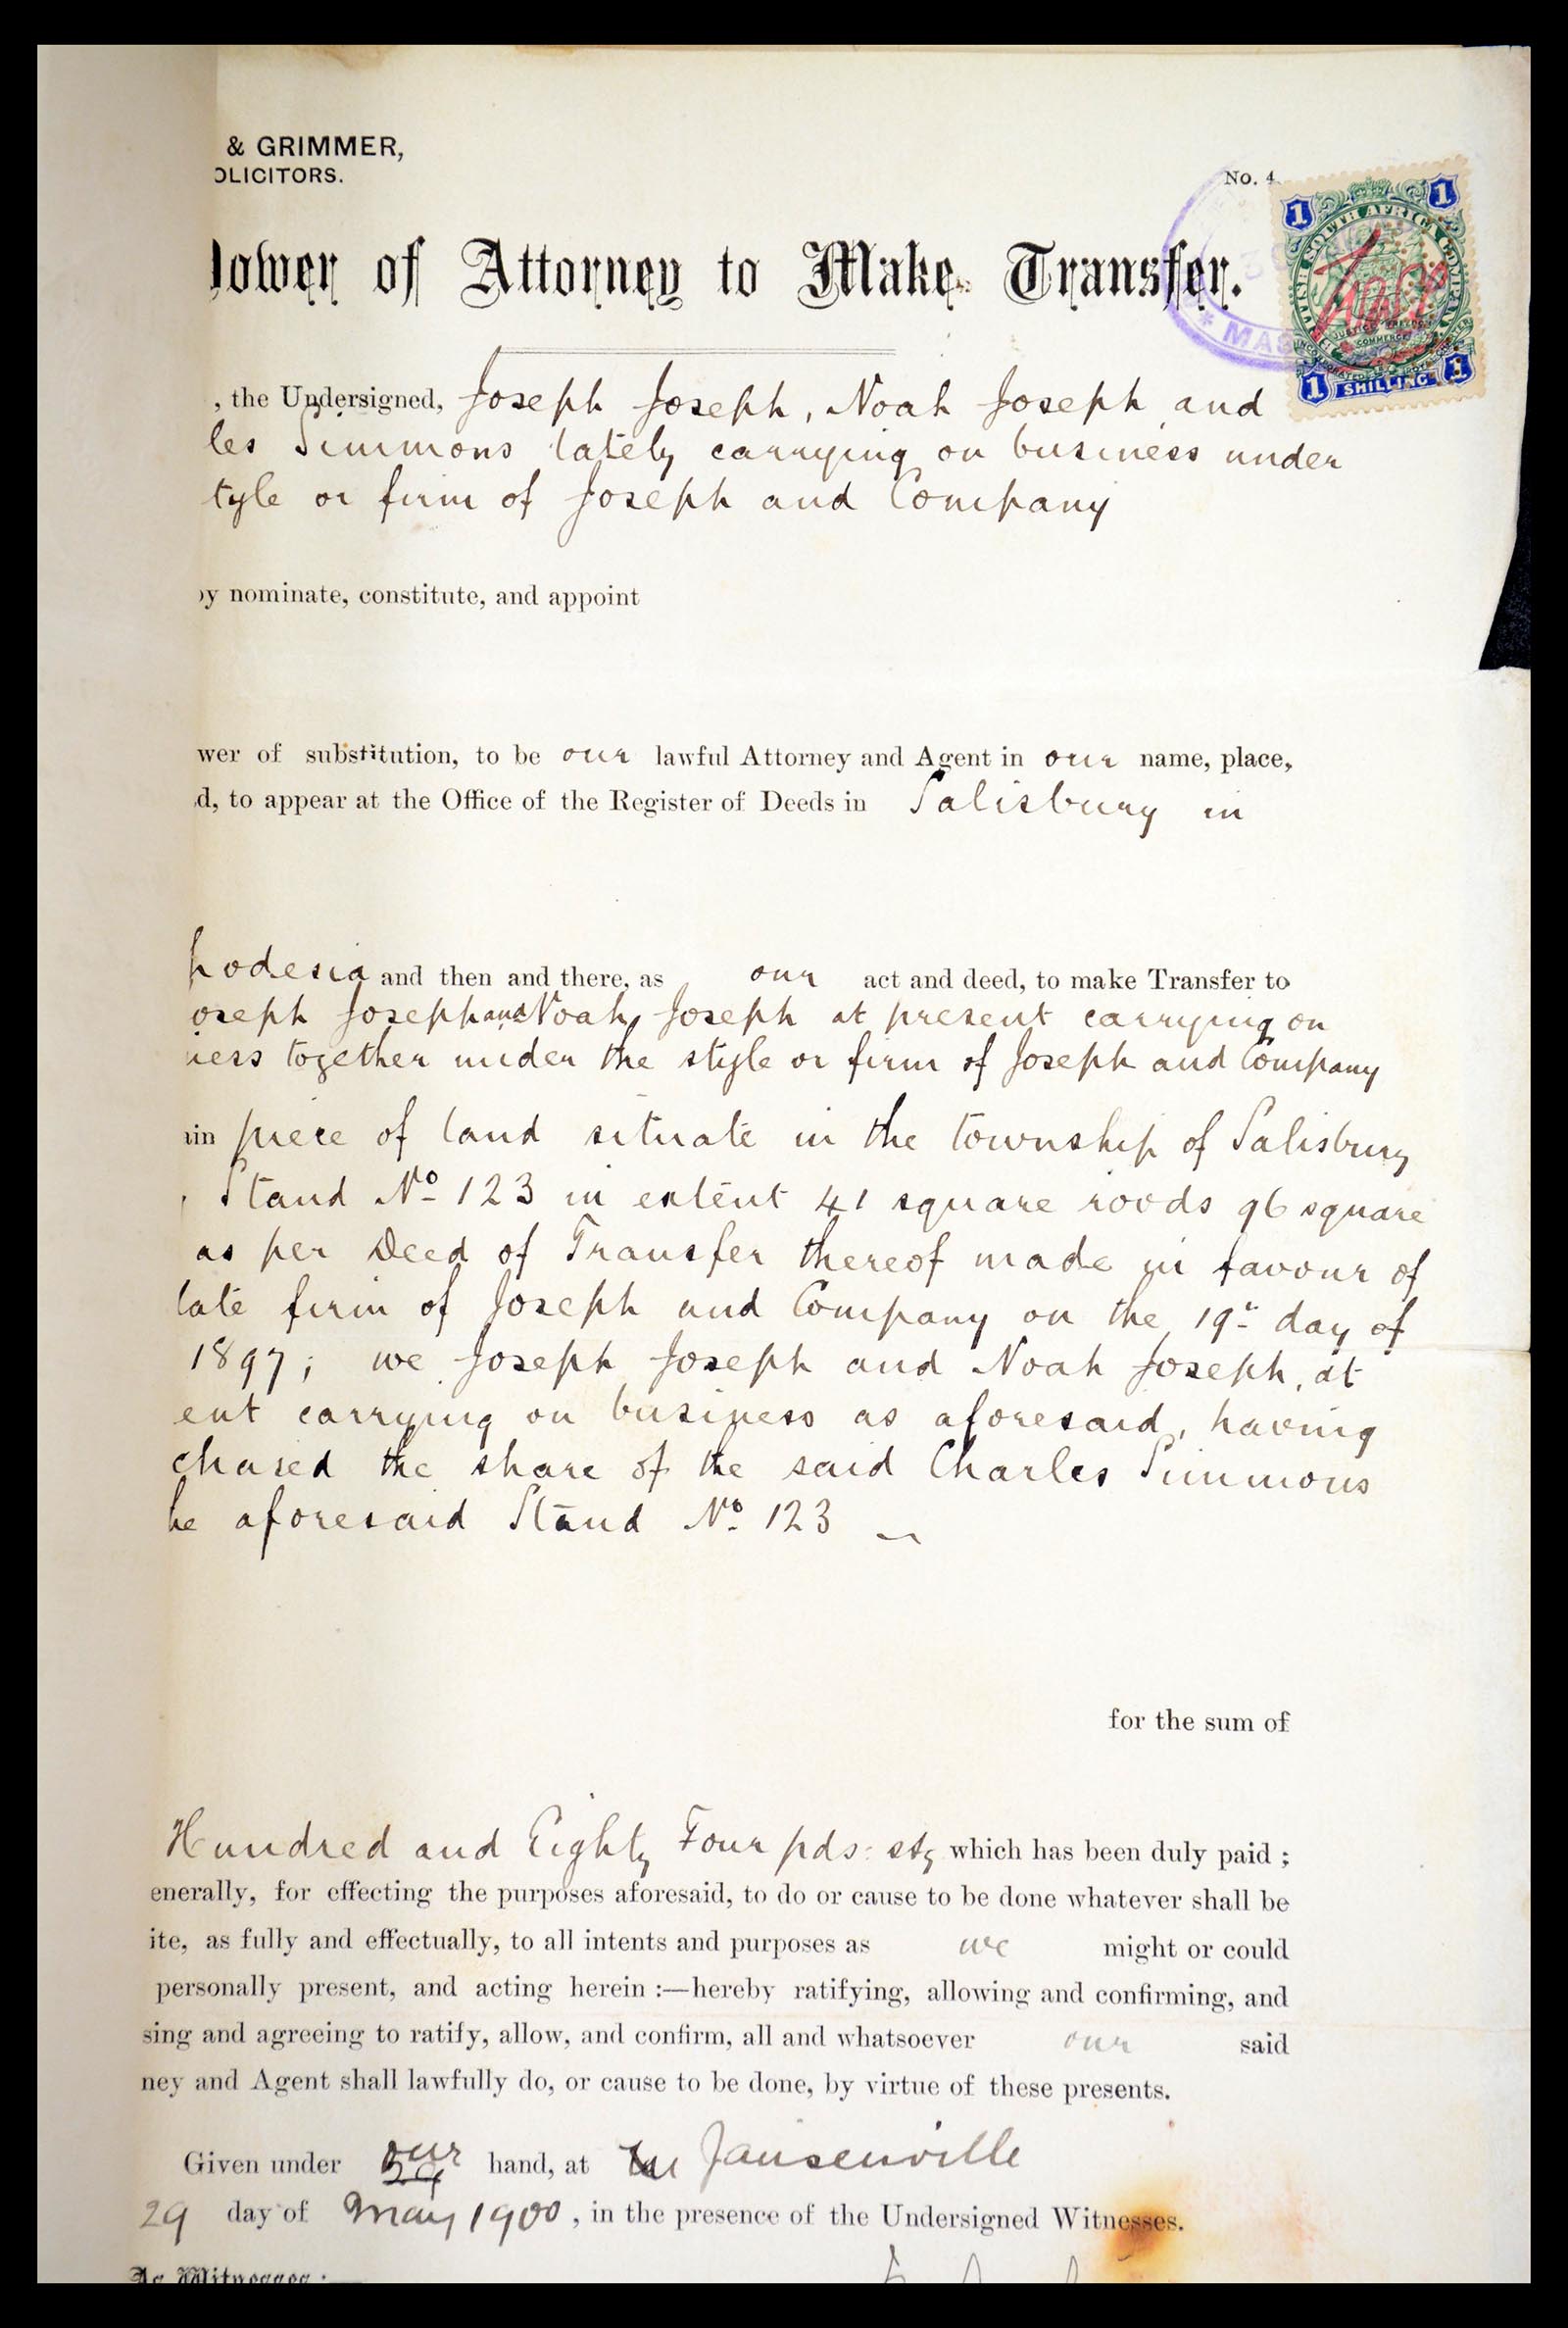 & GRIMMER,
OLICITORS.
No. 4
Power of Attorney to Make Transfer.
BRITISH SOUTH AFRICA COMPANY
1 1
JUSTICE FREEDOM
COMMERCE
1 SHILLING 1
* MAS
, the Undersigned, Joseph Joseph, Noah Joseph and
les Simmons lately carrying on business under
tyle or firm of Joseph and Company
by nominate, constitute, and appoint
wer of substitution, to be our lawful Attorney and Agent in our name, place,
d, to appear at the Office of the Register of Deeds in Salisbury in
hodesia and then and there, as our act and deed, to make Transfer to
oseph Joseph and Noah Joseph at present carrying on
ness together under the style or firm of Joseph and Company
ain piece of land situate in the township of Salisbury
Stand No 123 in extent 41 square roods 96 square
as per Deed of Transfer thereof made in favour of
late firm of Joseph and Company on the 19th day of
1897; we Joseph Joseph and Noah Joseph, at
ent carrying on business as aforesaid, having
chased the share of the said Charles Simmons
he aforesaid Stand No 123
for the sum of
Hundred and Eighty Four pds: stg which has been duly paid ;
enerally, for effecting the purposes aforesaid, to do or cause to be done whatever shall be
ite, as fully and effectually, to all intents and purposes as we might or could
personally present, and acting herein :—hereby ratifying, allowing and confirming, and
sing and agreeing to ratify, allow, and confirm, all and whatsoever our said
ney and Agent shall lawfully do, or cause to be done, by virtue of these presents.
Given under our hand, at Jansenville
29 day of May 1900, in the presence of the Undersigned Witnesses.
As Witnesses :—